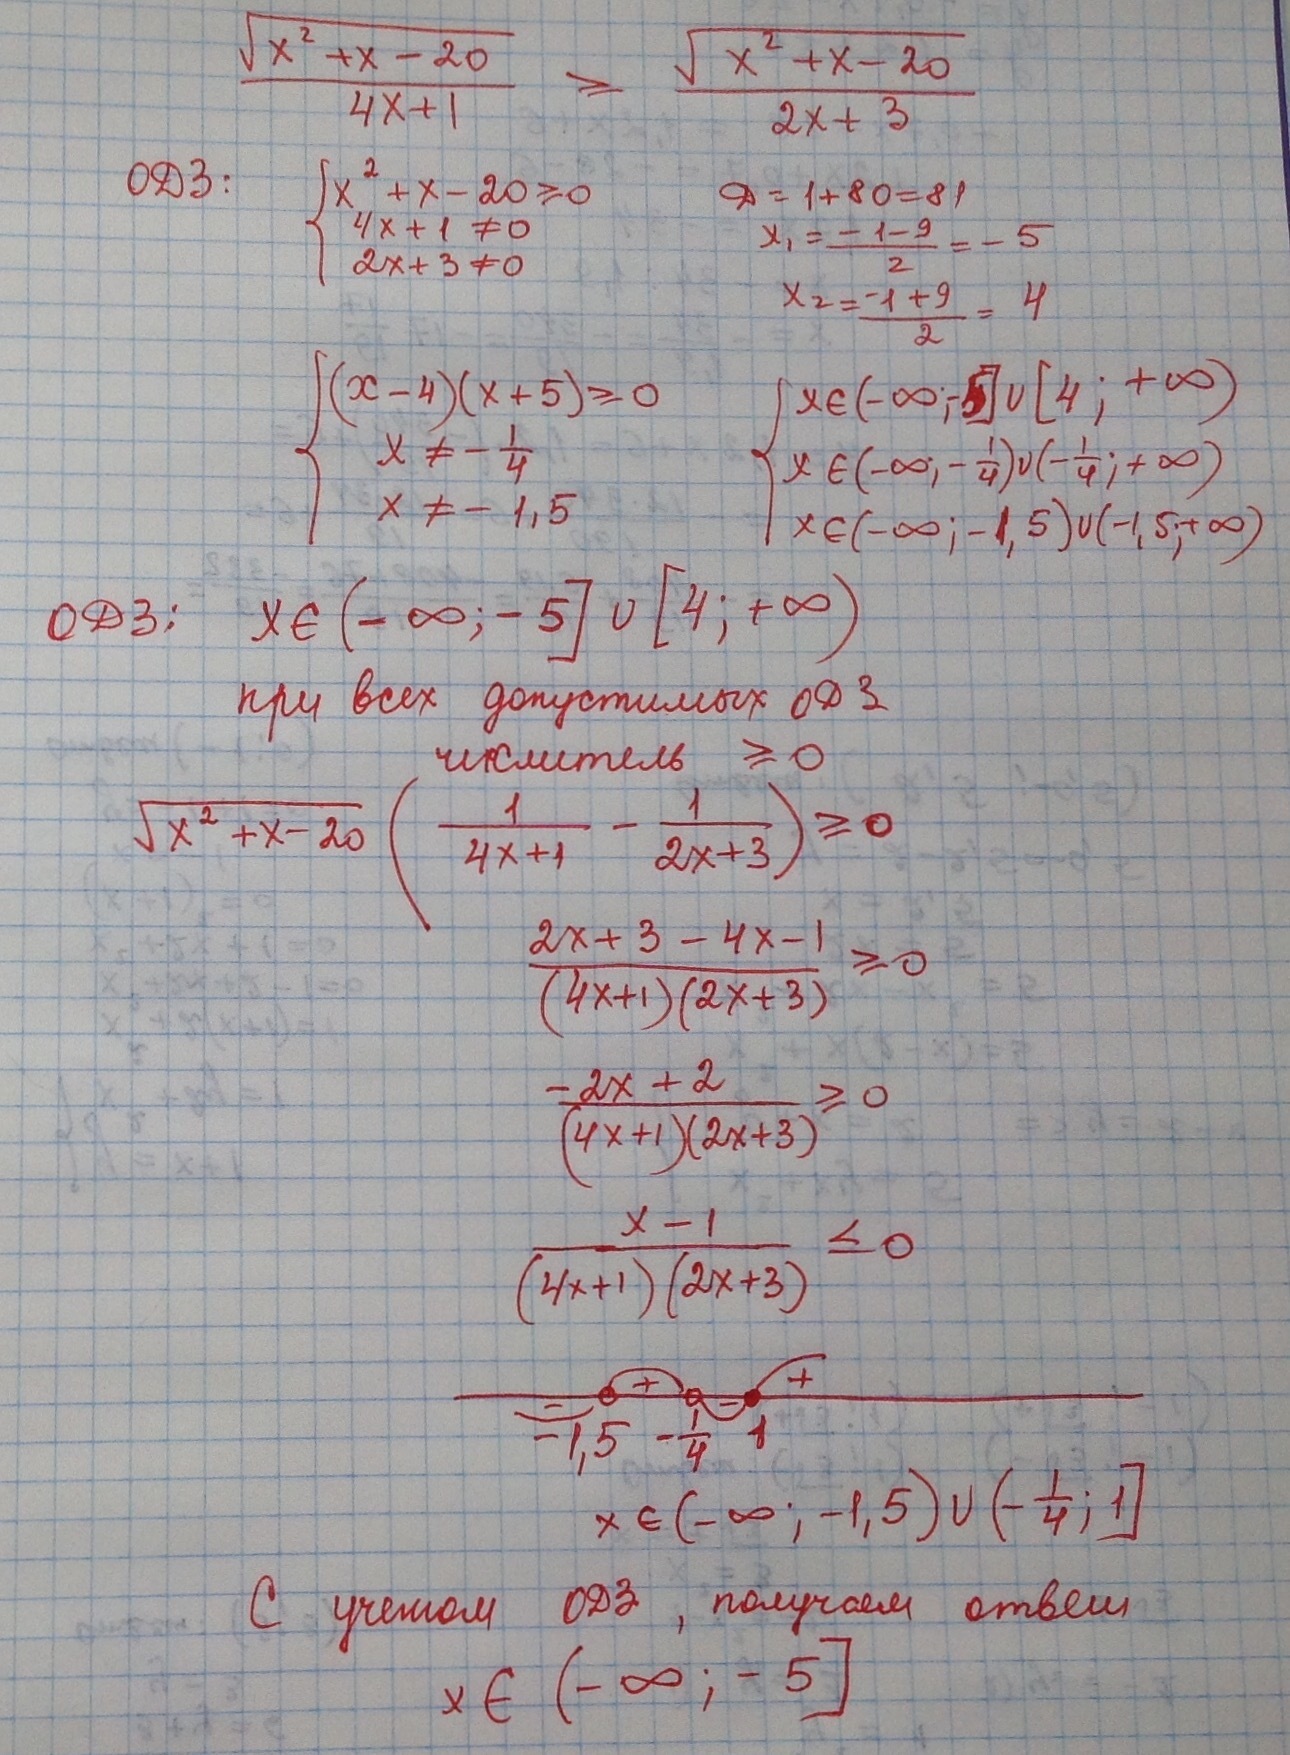 √(x² + x − 20) / (4x+1) ⩾ √(x² + x − 20) / (2x + 3)
ОДЗ: { x² + x − 20 ⩾ 0
4x + 1 ≠ 0
2x + 3 ≠ 0
D = 1 + 80 = 81
x₁ = (−1−9)/2 = −5
x₂ = (−1+9)/2 = 4
{ (x−4)(x+5) ⩾ 0
x ≠ −1/4
x ≠ −1,5
{ x ∈ (−∞; −5] ∪ [4; +∞)
x ∈ (−∞; −1/4) ∪ (−1/4; +∞)
x ∈ (−∞; −1,5) ∪ (−1,5; +∞)
ОДЗ: x ∈ (−∞; −5] ∪ [4; +∞)
при всех допустимых ОДЗ
числитель ⩾ 0
√(x² + x − 20) (1/(4x+1) − 1/(2x+3)) ⩾ 0
(2x + 3 − 4x − 1) / ((4x+1)(2x+3)) ⩾ 0
(−2x + 2) / ((4x+1)(2x+3)) ⩾ 0
(x − 1) / ((4x+1)(2x+3)) ≤ 0
− + − +
−1,5 −1/4 1
x ∈ (−∞; −1,5) ∪ (−1/4; 1]
С учетом ОДЗ, получаем ответ
x ∈ (−∞; −5]